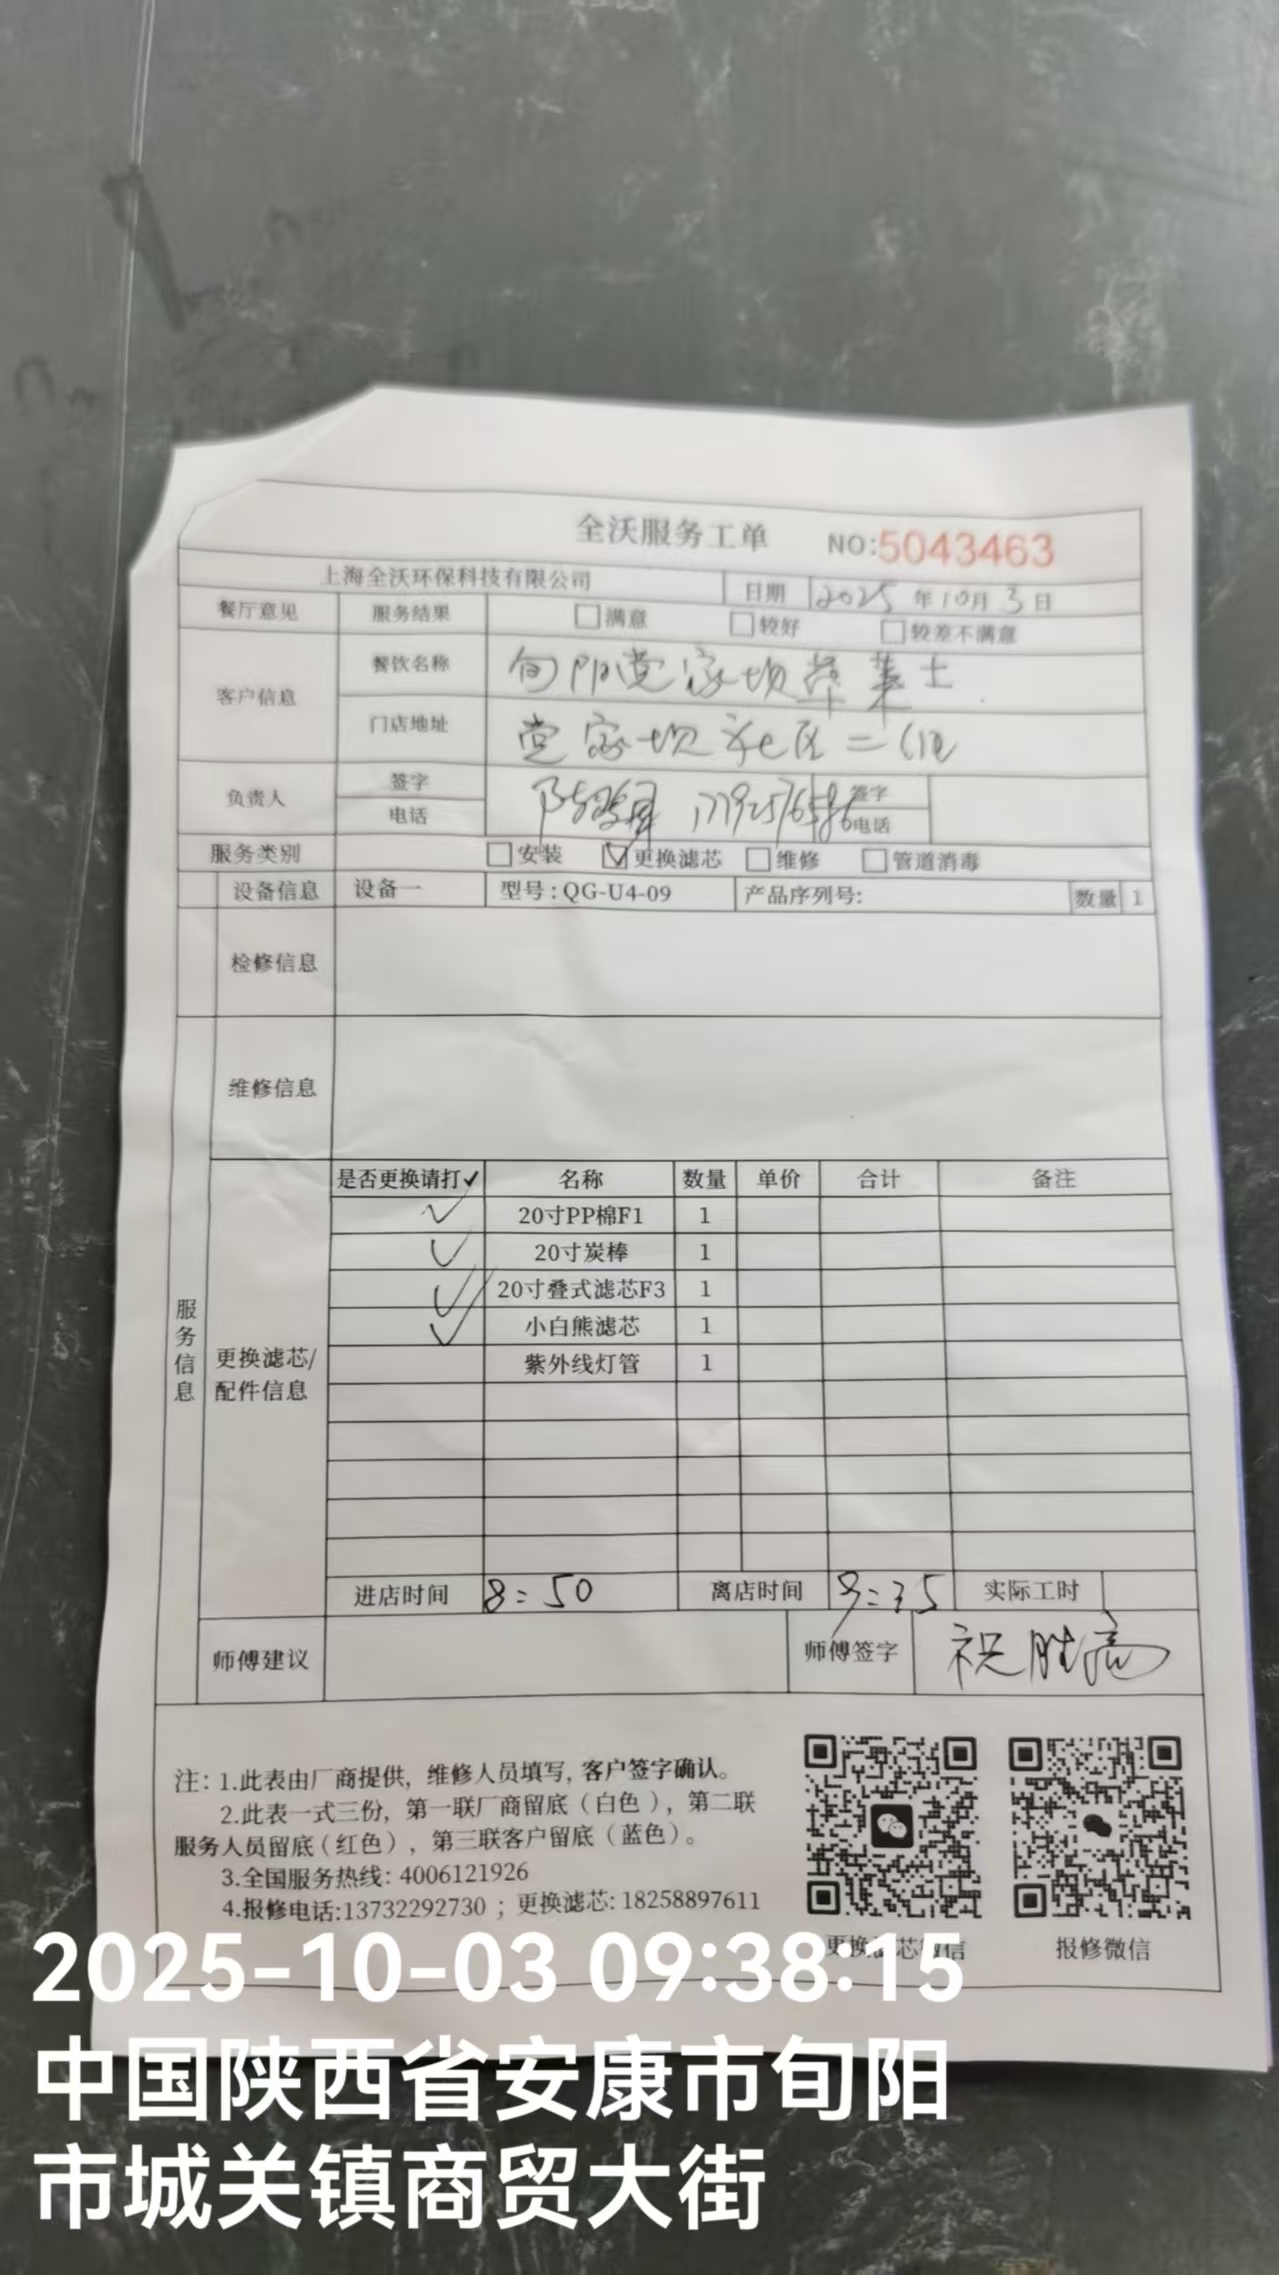 全沃服务工单 NO:5043463
上海全沃环保科技有限公司 日期 2025 年 10 月 3 日
餐厅意见 服务结果 满意 较好 较差不满意
客户信息 餐饮名称 旬阳党家坝华莱士
门店地址 党家坝社区二
负责人 签字 签字
电话 电话
服务类别 安装 更换滤芯 维修 管道消毒
设备信息 设备一 型号:QG-U4-09 产品序列号: 数量 1
检修信息
维修信息
服务信息
更换滤芯/
配件信息
是否更换请打✓ 名称 数量 单价 合计 备注
✓ 20寸PP棉F1 1
✓ 20寸炭棒 1
✓ 20寸叠式滤芯F3 1
✓ 小白熊滤芯 1
紫外线灯管 1
进店时间 8:50 离店时间 9:35 实际工时
师傅建议 师傅签字 祝胜高
注: 1.此表由厂商提供, 维修人员填写, 客户签字确认。
2.此表一式三份, 第一联厂商留底(白色), 第二联
服务人员留底(红色), 第三联客户留底(蓝色)。
3.全国服务热线: 4006121926
4.报修电话:13732292730 ; 更换滤芯: 18258897611
更换滤芯微信 报修微信
2025-10-03 09:38:15
中国陕西省安康市旬阳
市城关镇商贸大街